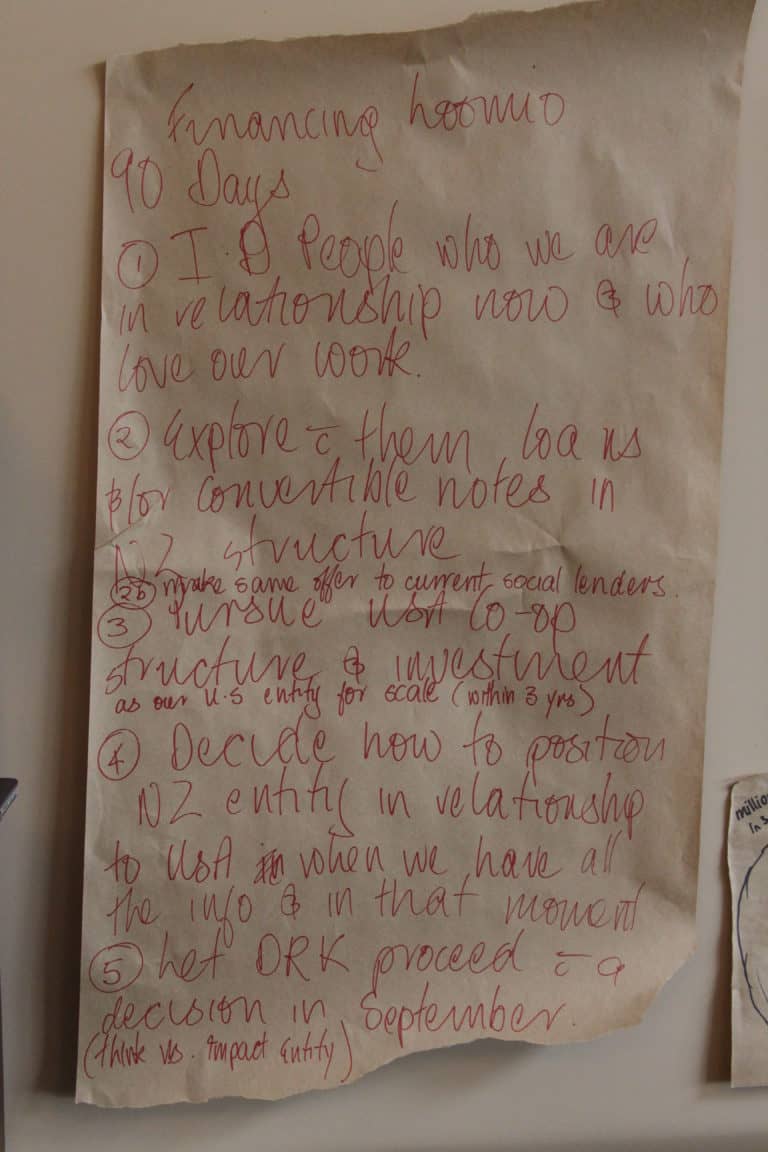 Financing Loomio
90 Days
① I.D People who we are
in relationship now & who
love our work.
② Explore c̄ them loans
&/or convertible notes in
NZ structure
②b make same offer to current social lenders.
③ Pursue USA Co-op
structure & investment
as our U.S entity for scale (within 3 yrs)
④ Decide how to position
NZ entity in relationship
to USA when we have all
the info & in that moment
⑤ Let DRK proceed c̄ a
decision in September.
(think vs. impact Entity)
million
in 3